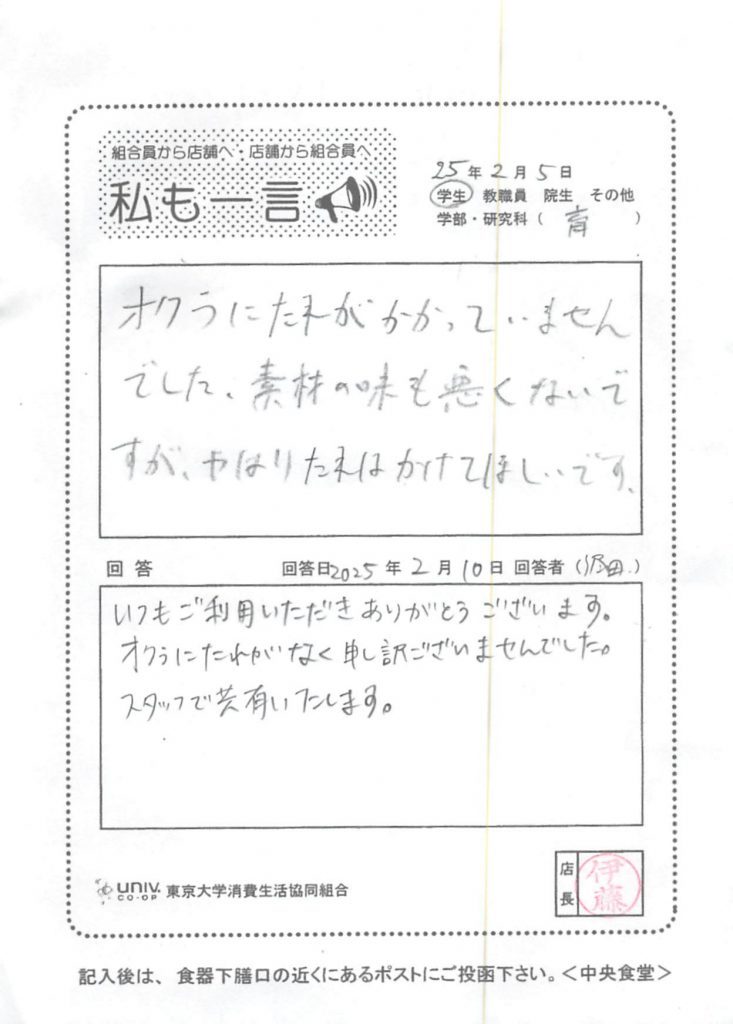 組合員から店舗へ・店舗から組合員へ
私も一言
25年2月5日
学生 教職員 院生 その他
学部・研究科（ 育 ）
オクラにたれがかかっていません
でした、素材の味も悪くないで
すが、やはりたれはかけてほしいです。
回答 回答日2025年2月10日 回答者（沢田）
いつもご利用いただきありがとうございます。
オクラにたれがなく申し訳ございませんでした。
スタッフで共有いたします。
店長 伊藤
univ. CO-OP 東京大学消費生活協同組合
記入後は、食器下膳口の近くにあるポストにご投函下さい。＜中央食堂＞